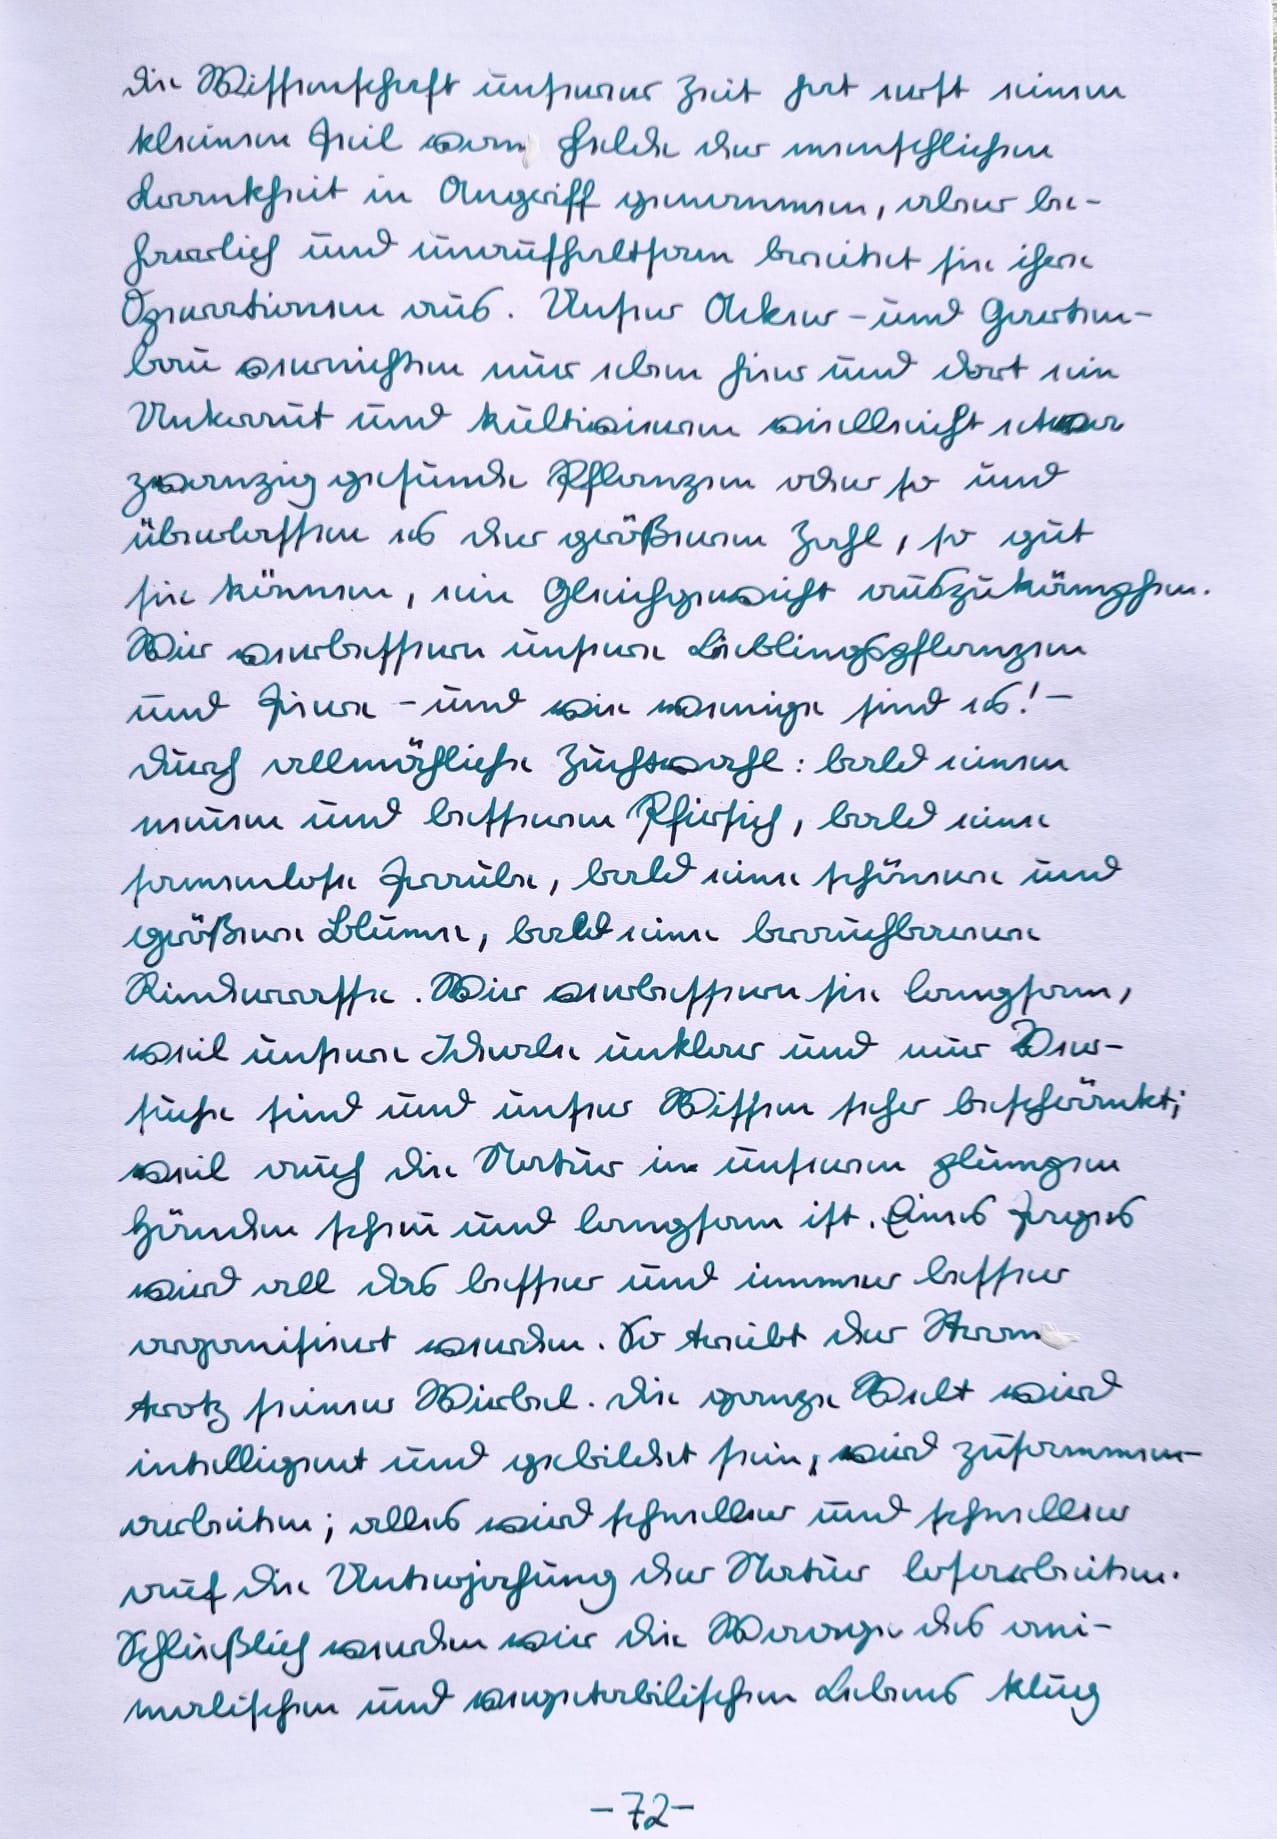 die Wissenschaft unserer Zeit hat erst einen
kleinen Teil vom Felde der menschlichen
Krankheit in Angriff genommen, aber be-
harrlich und unaufhaltsam breitet sie ihre
Operationen aus. Unser Acker- und Garten-
bau vernichten nur eben hier und dort ein
Unkraut und kultivieren vielleicht etwa
zwanzig gesunde Pflanzen oder so und
überlassen es der größeren Zahl, so gut
sie können, ein Gleichgewicht auszukämpfen.
Wir verbessern unsere Lieblingspflanzen
und Tiere – und wie wenige sind es! –
durch allmähliche Zuchtwahl: bald einen
neuen und besseren Pfirsich, bald eine
samenlose Traube, bald eine schönere und
größere Blume, bald eine brauchbarere
Rinderrasse. Wir verbessern sie langsam,
weil unsere Ideale unklar und nur Ver-
suche sind und unser Wissen sehr beschränkt;
weil auch die Natur in unseren plumpen
Händen scheu und langsam ist. Eines Tages
wird all das besser und immer besser
organisiert werden. So treibt der Strom
trotz seiner Wirbel. die ganze Welt wird
intelligent und gebildet sein, wird zusammen-
arbeiten; alles wird schneller und schneller
auf die Unterjochung der Natur losarbeiten.
Schließlich werden wir die Waage des ani-
malischen und vegetabilischen Lebens klug
-72-